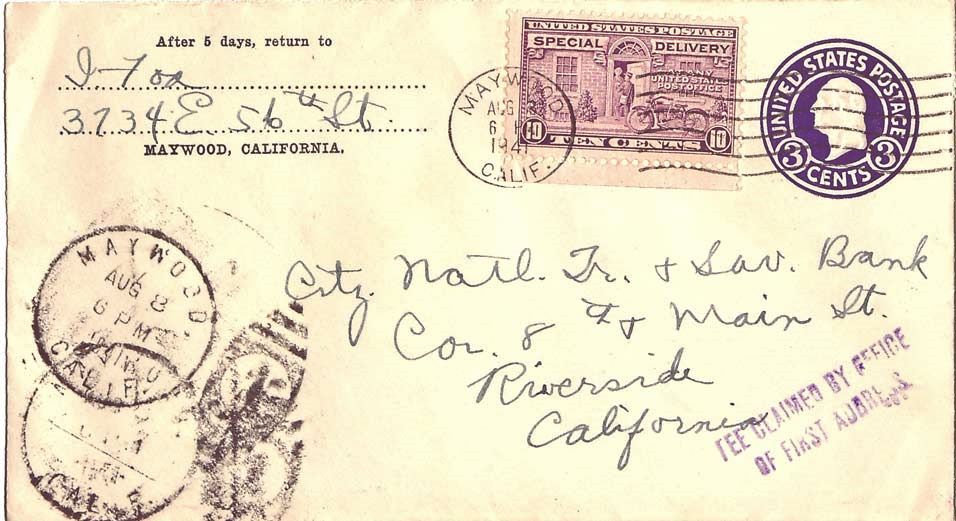 After 5 days, return to
I. Fox
3734 E. 56th St.
MAYWOOD, CALIFORNIA.
UNITED STATES POSTAGE
SPECIAL DELIVERY
UNITED STATES
POST OFFICE
10 TEN CENTS 10
MAYWOOD
AUG 8
6 P
1941
CALIF.
UNITED STATES POSTAGE
3 CENTS 3
MAYWOOD
AUG 8
6 PM
CALIF.
CALIF
Ctz. Natl. Tr. & Sav. Bank
Cor. 8th & Main St.
Riverside
California
FEE CLAIMED BY OFFICE
OF FIRST ADDRESS